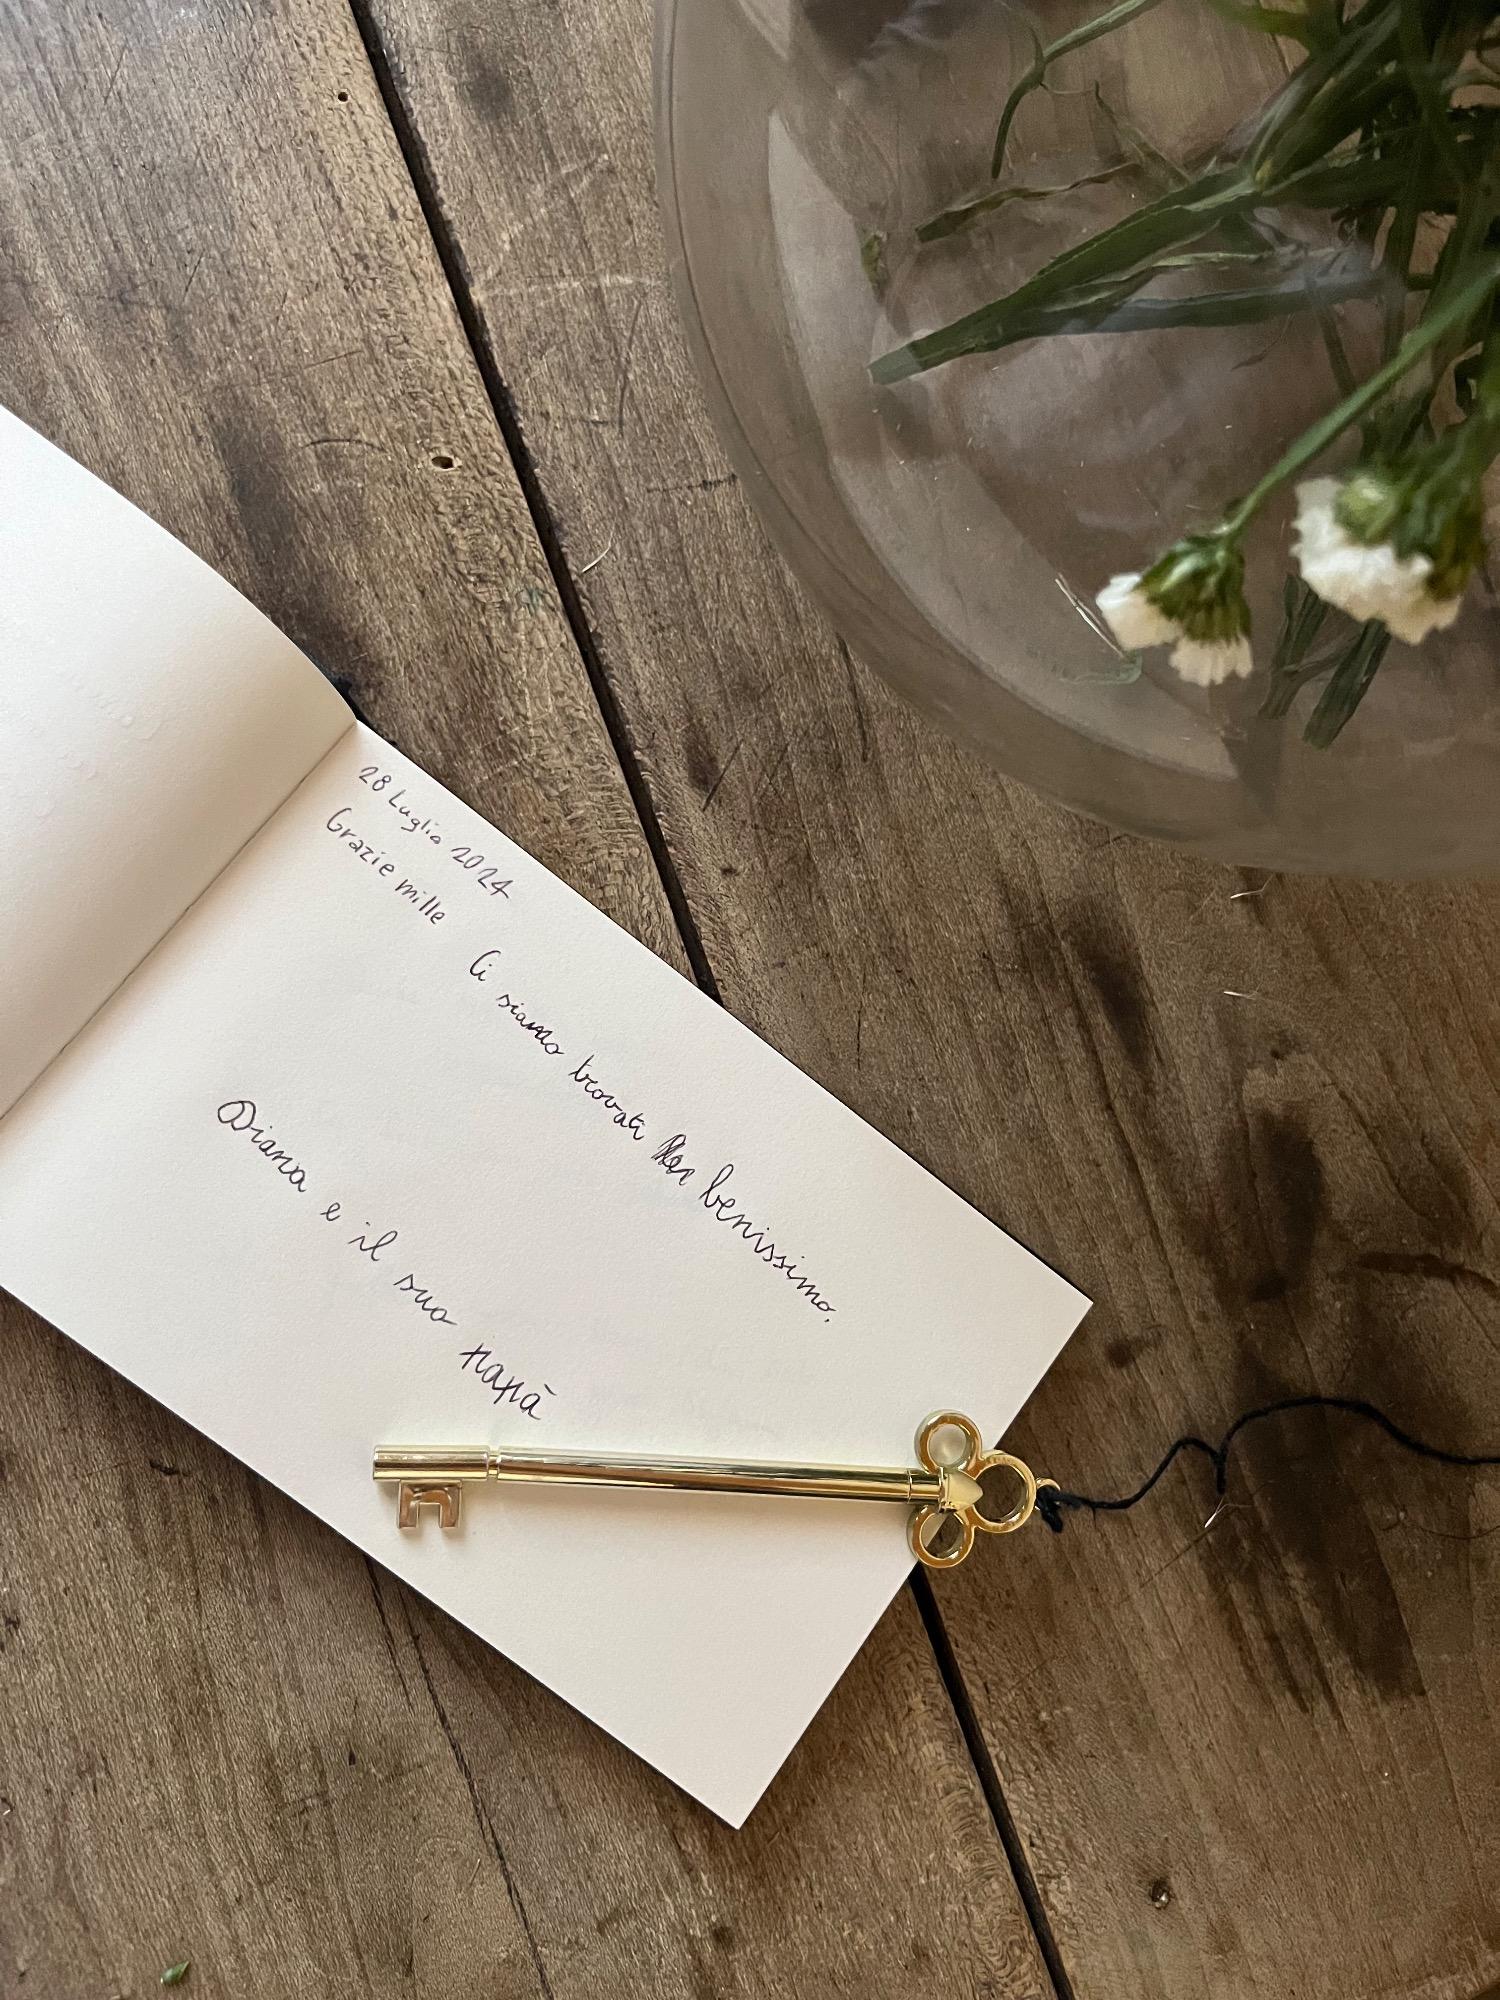 28 Luglio 2024
Grazie mille
Ci siamo trovati benissimo.
Diana e il suo papà